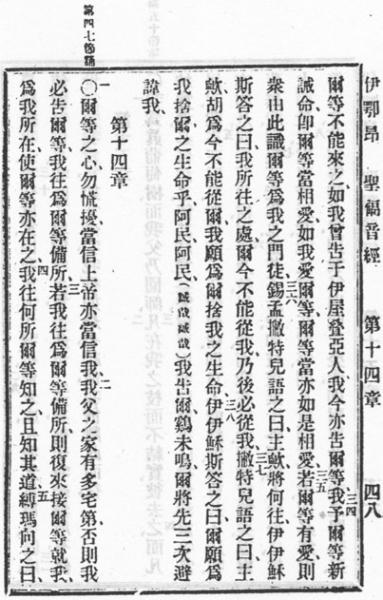 伊鄂昂 聖福音經 第十四章 四八
爾等不能來之如我曾告于伊屋疊亞人我今亦告爾等三四我予爾等新
誡命卽爾等當相愛如我愛爾等爾等當亦如是相愛三五若爾等有愛則
衆由此識爾等爲我之門徒三六錫孟撇特兒語之曰主歟將何往伊伊穌
斯答之曰我所往之處爾今不能從我乃後必從我三七撇特兒語之曰主
歟胡爲今不能從爾我願爲爾捨我之生命三八伊伊穌斯答之曰爾願爲
我捨爾之生命乎阿民阿民(誠哉誠哉)我告爾鷄未鳴爾將先三次避
諱我
第十四章
一〇爾等之心勿慌擾當信上帝亦當信我二我父之家有多宅第否則我
必告爾等我往爲爾等備所三若我往爲爾等備所則復來接爾等就我
爲我所在使爾等亦在之四我往何所爾等知之且知其道五縛瑪向之曰
第四七節誦